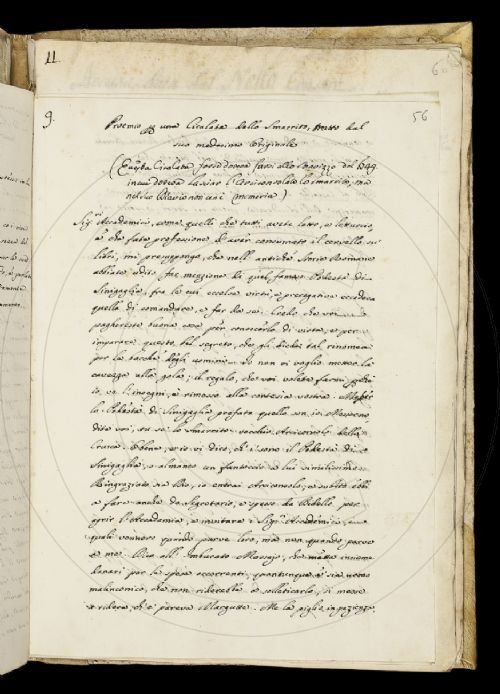 11.
56
9.
Proemio p una Cicalata dello Smarrito, tratto dal
suo medesimo Originale
(Questa Cicalata forse doveva farsi allo Stravizzo del 1644
in cui doveva lasciar l'Arciconsolato lo Smarrito, ma
nel suo Diario non ve n'è memoria)
Sig.ri Accademici, come quelli che tutti avete letto, e letturccio,
e che fate professione d'aver consumato il cervello su
libri, mi presuppongo, che nell'antiche Storie Romane
abbiate udito far menzione di quel famoso Podestà di
Sinigaglia, fra le cui eccelse virtù, e prerogative eccedeva
quella di comandare, e far da sè. Credo che voi
paghereste buone cose per conoscerlo di vista, e per
imparare questo bel segreto, che gli diede tal rinomea
per le bocche degli uomini. Io non vi voglio metter la
cavezza alla gola; il regalo, che voi volete farmi
lo, va rimesso alla cortesia vostra.
lo Podestà di Sinigaglia prefato quello son io. Messeno,
dite voi, tu se' lo Smarrito vecchio Arciconsolo della
Crusca. Ebbene, ed io vi dico, ch'i' sono il Podestà di
Sinigaglia, o almanco un fantoccio a lui similissimo.
Ringraziato sia Dio, io entrai Arciconsolo, e subito ebbi
a fare anche da Segretario, e spesso da Bidello per
aprir l'Accademia, e invitare i Sig.ri Accademici, i
quali vennero quando parve loro, ma non quando parve
a me. Dico all' Imbucato Massajo, che metta insieme
danari per le spese occorrenti, quantunque e' sia uomo
malinconico, e da non ribecablo e solleticarlo, si messe
a ridere, ch' e' pareva Margutte. Me la piglio in pazienza,